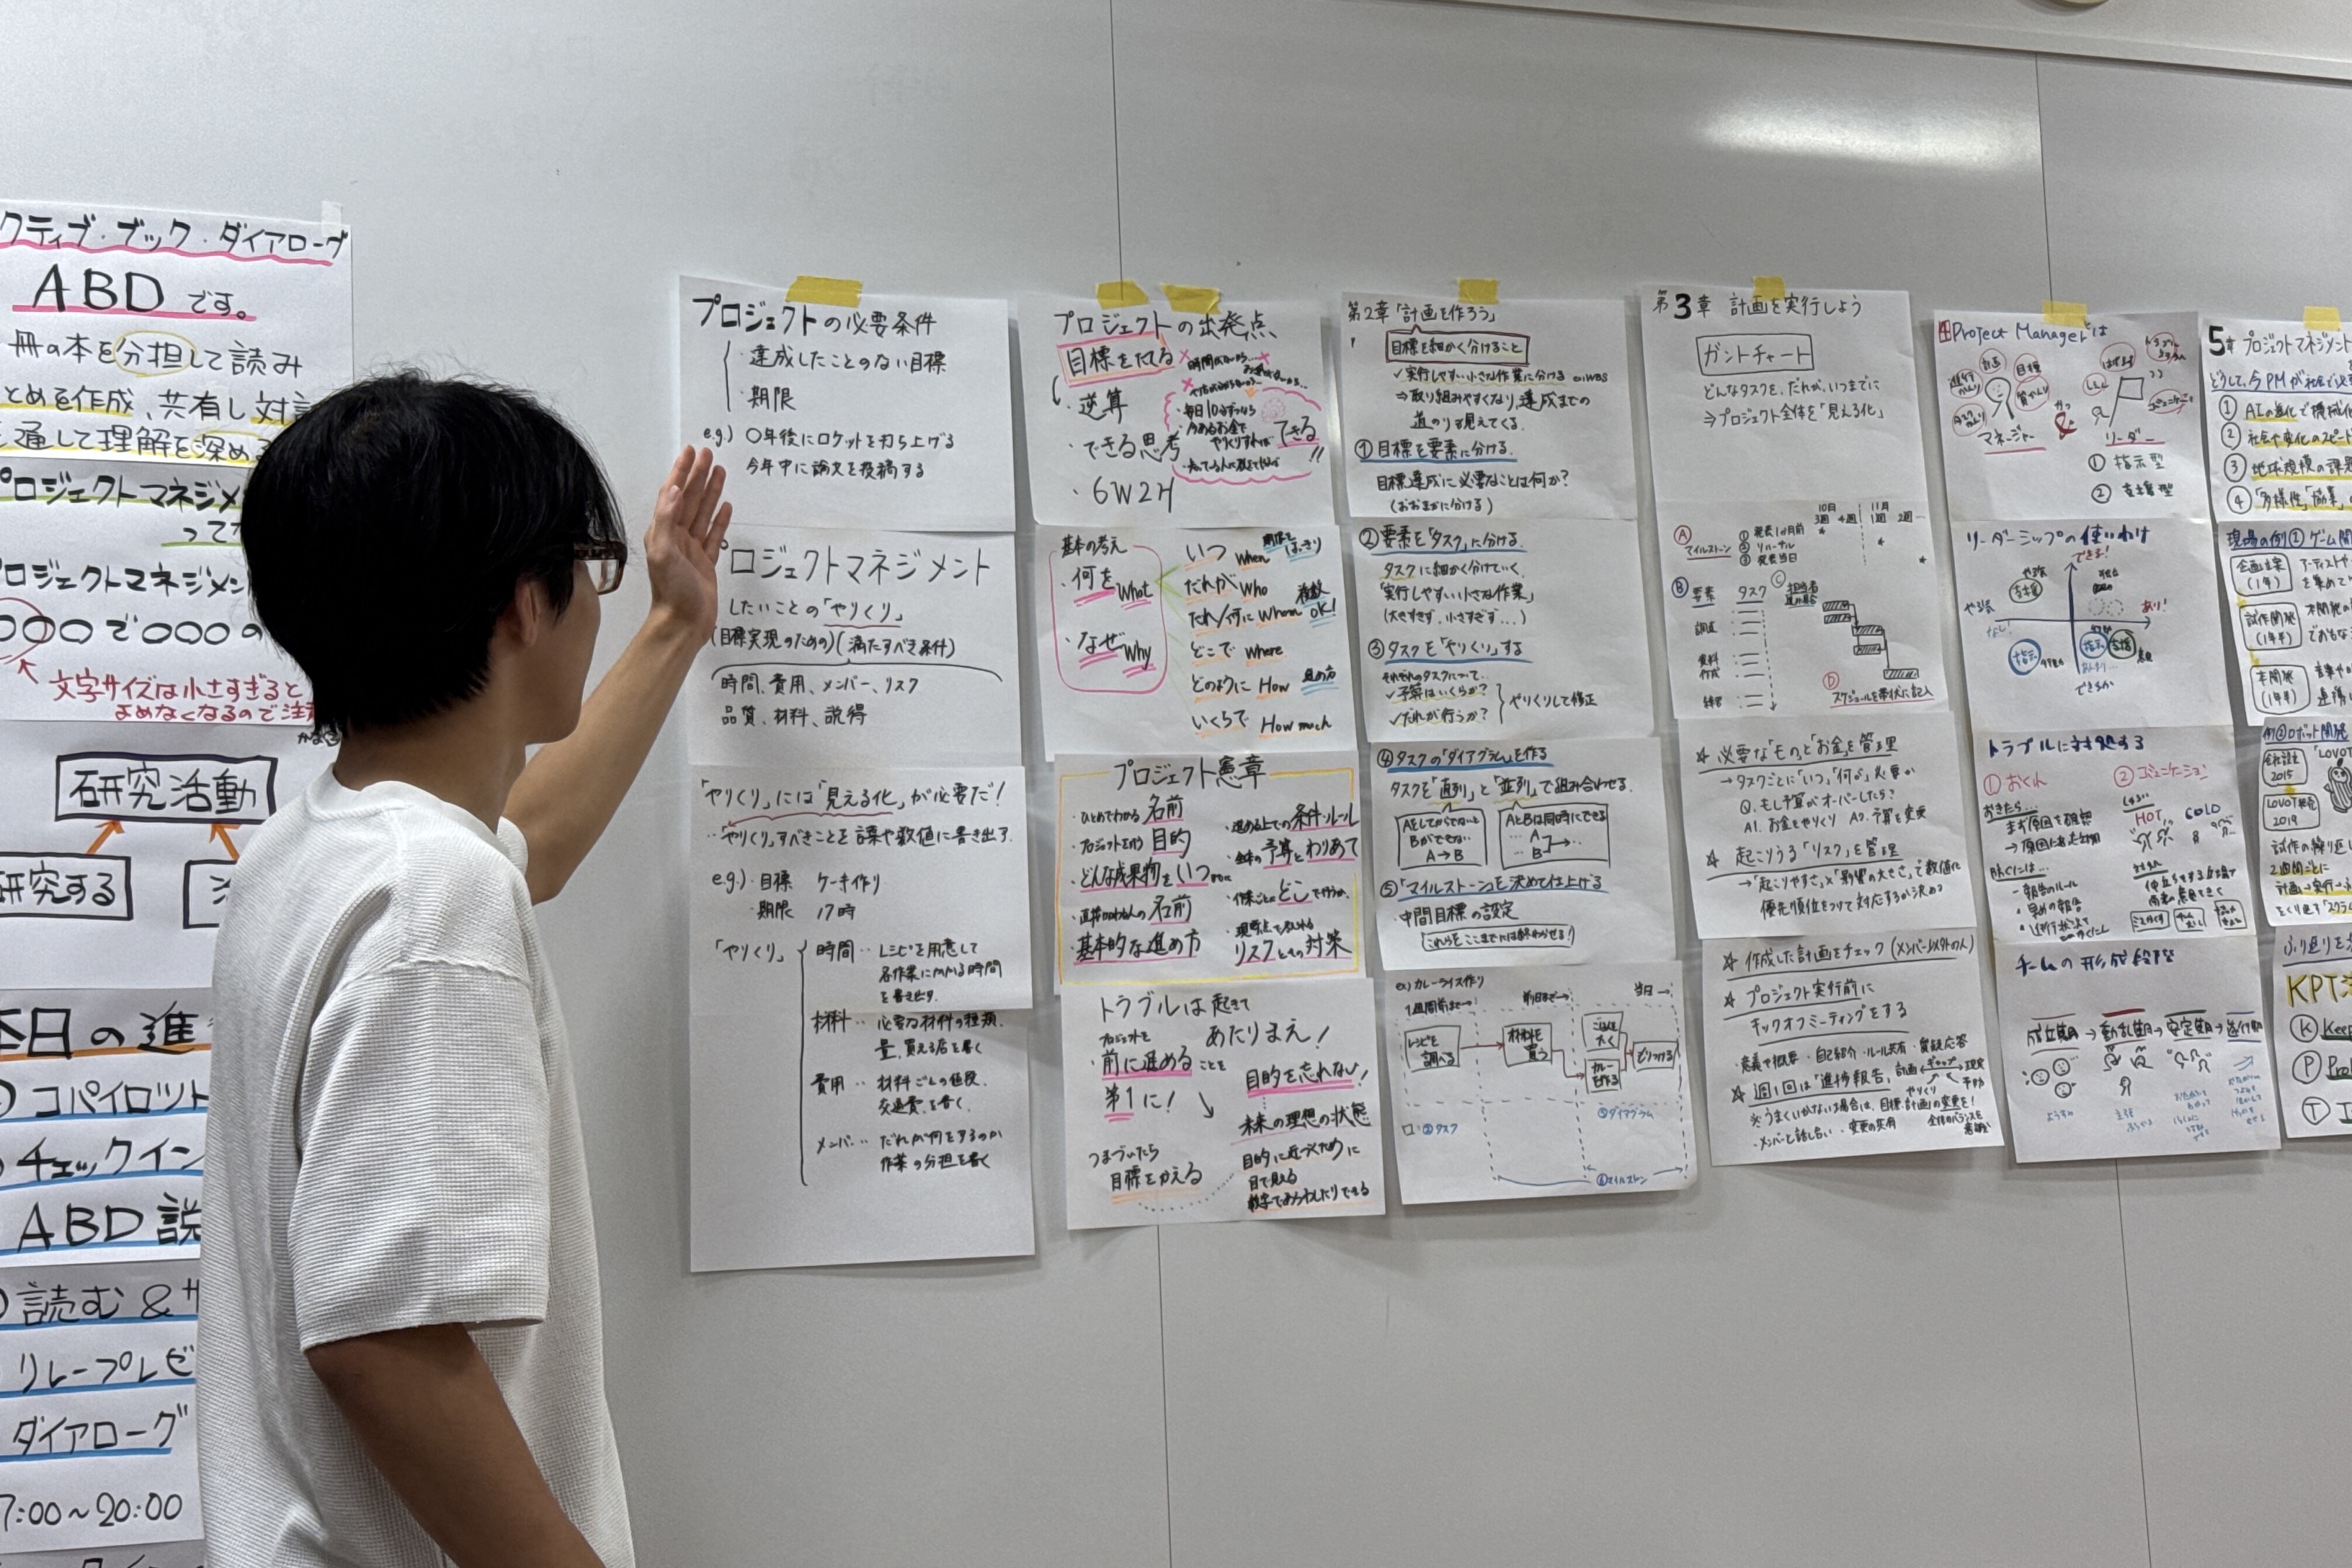 クティブ・ブック・ダイアローグ
ABD です。
冊の本を分担して読み
とめを作成、共有し対
通して理解を深め
プロジェクトマネジメ
って
ロジェクトマネジメン
〇〇〇で〇〇〇の
文字サイズは小さすぎると
よめなくなるので注
研究活動
研究する
本日の進
コパイロット
チェックイン
ABD 説
読む &サ
リレープレゼ
ダイアローグ
7:00~20:00
プロジェクトの必要条件
・達成したことのない目標
・期限
e.g.) 〇年後にロケットを打ち上げる
今年中に論文を投稿する
プロジェクトマネジメント
したいことの「やりくり」
(目標実現のための)(満たすべき条件)
時間、費用、メンバー、リスク
品質、材料、説得
「やりくり」には「見える化」が必要だ!
…「やりくり」すべきことを言葉や数値に書き出す.
e.g.)・目標 ケーキ作り
・期限 17時
「やりくり」
時間‥ レシピを用意して
各作業にかかる時間
を書き出す.
材料‥ 必要な材料の種類.
量、買える店を書く
費用‥ 材料ごとの値段.
交通費を書く.
メンバー‥ だれが何をするのか
作業の分担を書く
プロジェクトの出発点、
目標をたてる
・逆算
・できる思考
・6W2H
できる!!
基本の考え
・何を What
・なぜ Why
いつ When
だれが Who
だれ/何に Whom
複数OK!
どこで Where
どのように How
いくらで How much
プロジェクト憲章
・ひとめでわかる名前
・プロジェクトを行う目的
・どんな成果物をいつ
・基本的な進め方
・進める上での条件・ルール
・全体の予算とわりあて
リスクとその対策
トラブルは起きて
あたりまえ!
プロジェクトを
前に進めることを
第1に!
つまづいたら
目標をかえる
目的を忘れない!
未来の理想の状態
目的に近づくために
目で見える
数字であらわしたりできる
第2章「計画を作ろう」
目標を細かく分けること
✓実行しやすい小さな作業に分ける ex.WBS
⇒取り組みやすくなり、達成までの
道のりも見えてくる.
①目標を要素に分ける.
目標達成に必要なことは何か?
(おおまかに分ける)
②要素を「タスク」に分ける.
タスクに細かく分けていく.
「実行しやすい小さな作業」
(大きすぎず、小さすぎず…)
③タスクを「やりくり」する
それぞれのタスクについて…
✓予算はいくらか?
✓だれが行うか?
やりくりして修正
④タスクの「ダイアグラム」を作る
タスクを「直列」と「並列」で組み合わせる.
AをしてからでないとBができない… A→B
AとBは同時にできる
⑤「マイルストーン」を決めて仕上げる
・中間目標の設定
これらをここまでには終わらせる!
ex) カレーライス作り
1週間前まで→
前日まで→
当日→
レシピを調べる
材料を買う
ごはんを炊く
カレーを作る
もりつける
②タスク
④ダイアグラム
⑤マイルストーン
第3章 計画を実行しよう
ガントチャート
どんなタスクを、だれが、いつまでに
⇒プロジェクト全体を「見える化」
10月
3週 4週
11月
1週 2週
Ⓐ マイルストーン
① 発表1ヶ月前
② リハーサル
③ 発表当日
Ⓑ 要素 タスク Ⓒ 担当者
調査
資料作成
練習
Ⓓ スケジュールを帯状に記入
☆ 必要な「もの」と「お金」を管理
→タスクごとに「いつ」「何が」必要か
Q. もし予算がオーバーしたら?
A1. お金をやりくり A2. 予算を変更
☆ 起こりうる「リスク」を管理
→「起こりやすさ」×「影響の大きさ」で数値化
優先順位をつけて対応するか決める
☆ 作成した計画をチェック(メンバー以外の人)
☆ プロジェクト実行前に
キックオフミーティングをする
・意義や概要・自己紹介・ルール共有・質疑応答
☆ 週1回は「進捗報告」
※うまくいかない場合は、目標・計画の変更を!
・メンバーと話し合い・変更の共有
4 Project Managerとは
マネージャー
リーダー
① 指示型
② 支援型
リーダーシップの使いわけ
できる!
あり!
なし!
支援
指示
トラブルに対処する
① おくれ
② コミュニケーション
HOT
COLD
チームの形成段階
成立期→動乱期→安定期→遂行期
5章 プロジェクトマネジメント
① AIの進化で機械化
② 社会や変化のスピード
③ 地球規模の課題
④ 「多様性」「協業」
現場の例① ゲーム開
企画立案(1年)
試作開発(1年半)
本開発(1年半)
例② ロボット開発
会社設立2015
「LOVOT
LOVOT発売2019
試作の繰り返し
2週間ごとに
計画→実行→ふ
KPT
K Keep
P Pro
T